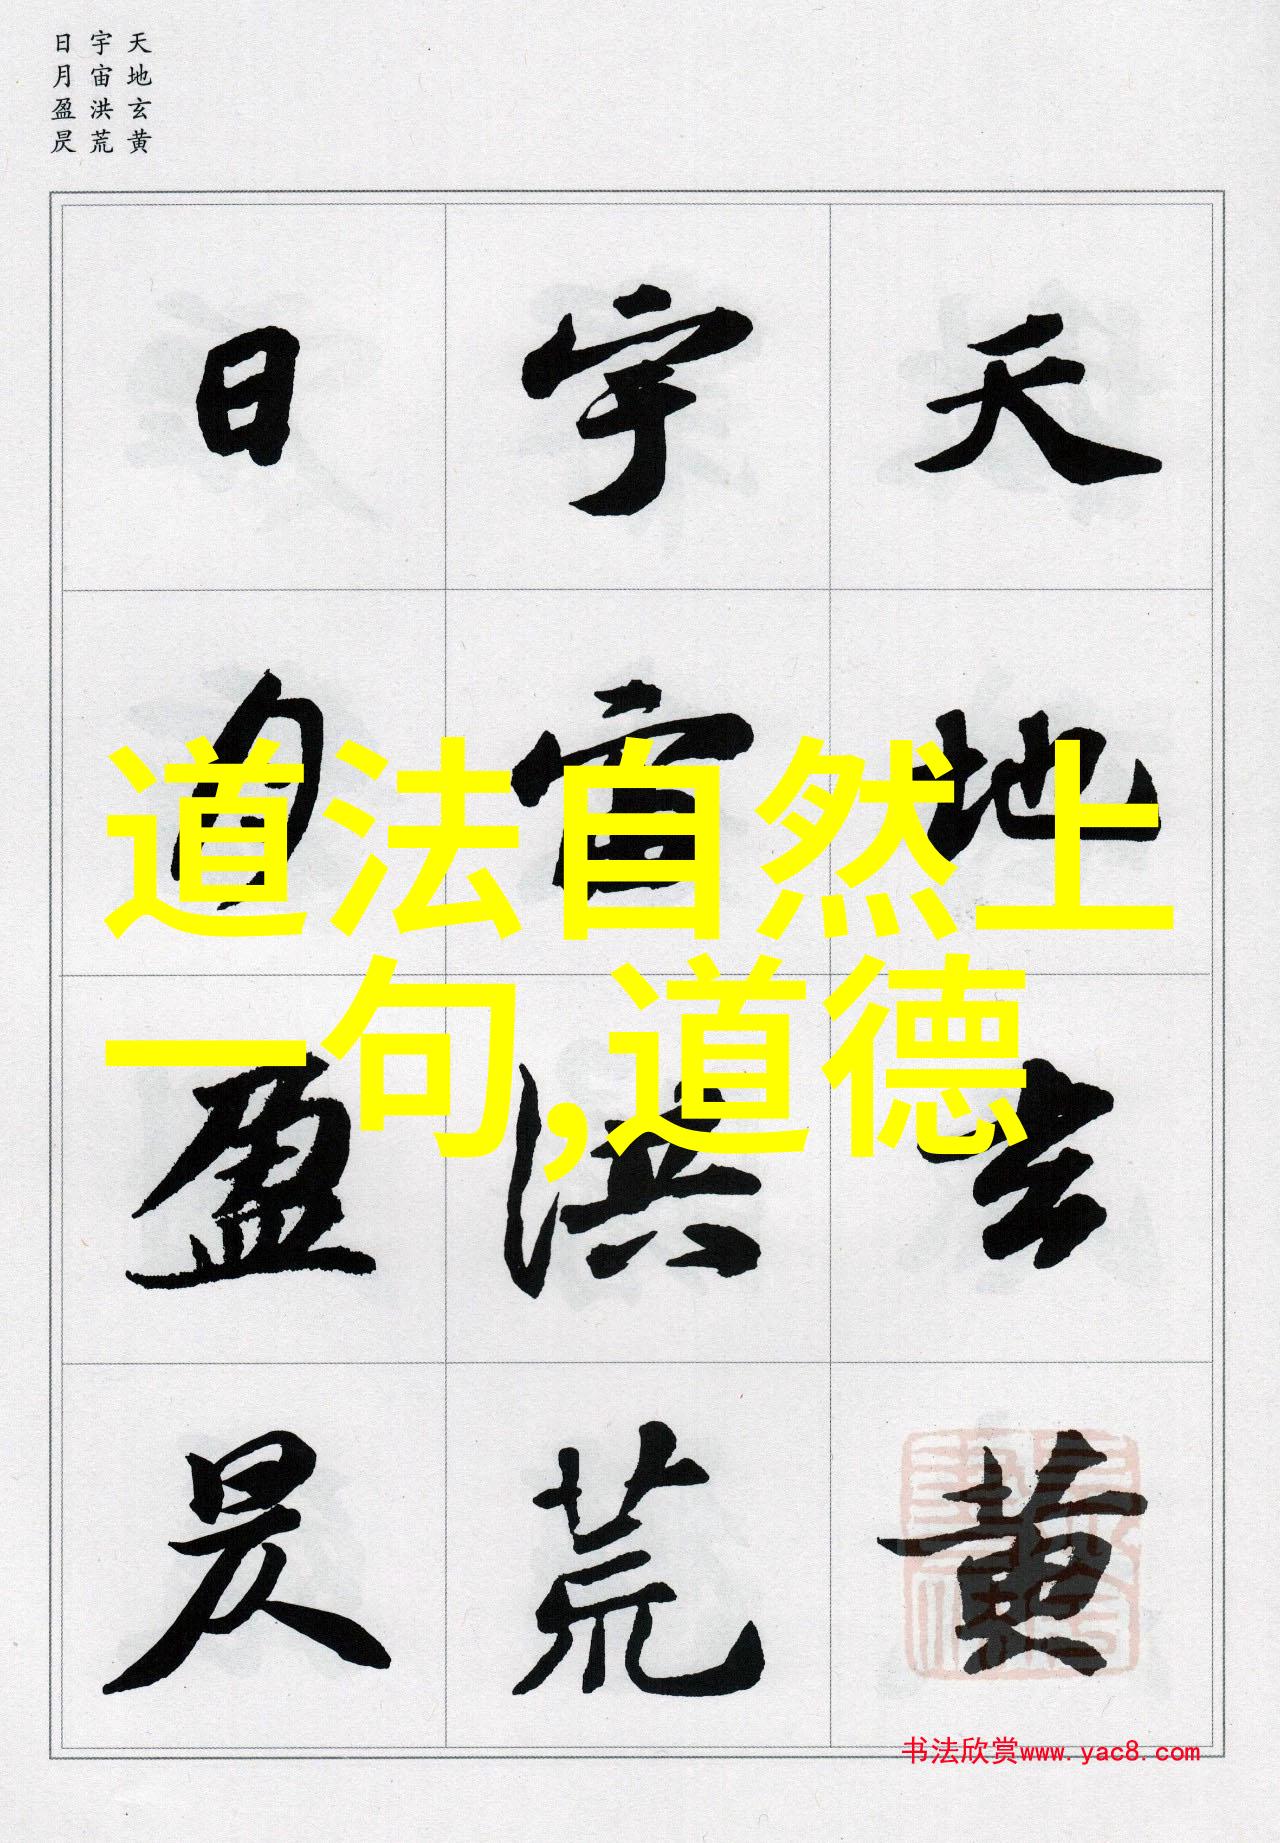 天地玄黄
宇宙洪荒
日月盈昃
天地玄黄
宇宙洪荒
日月盈昃
道法自然上
一句,道德
书法欣赏www.yac8.com